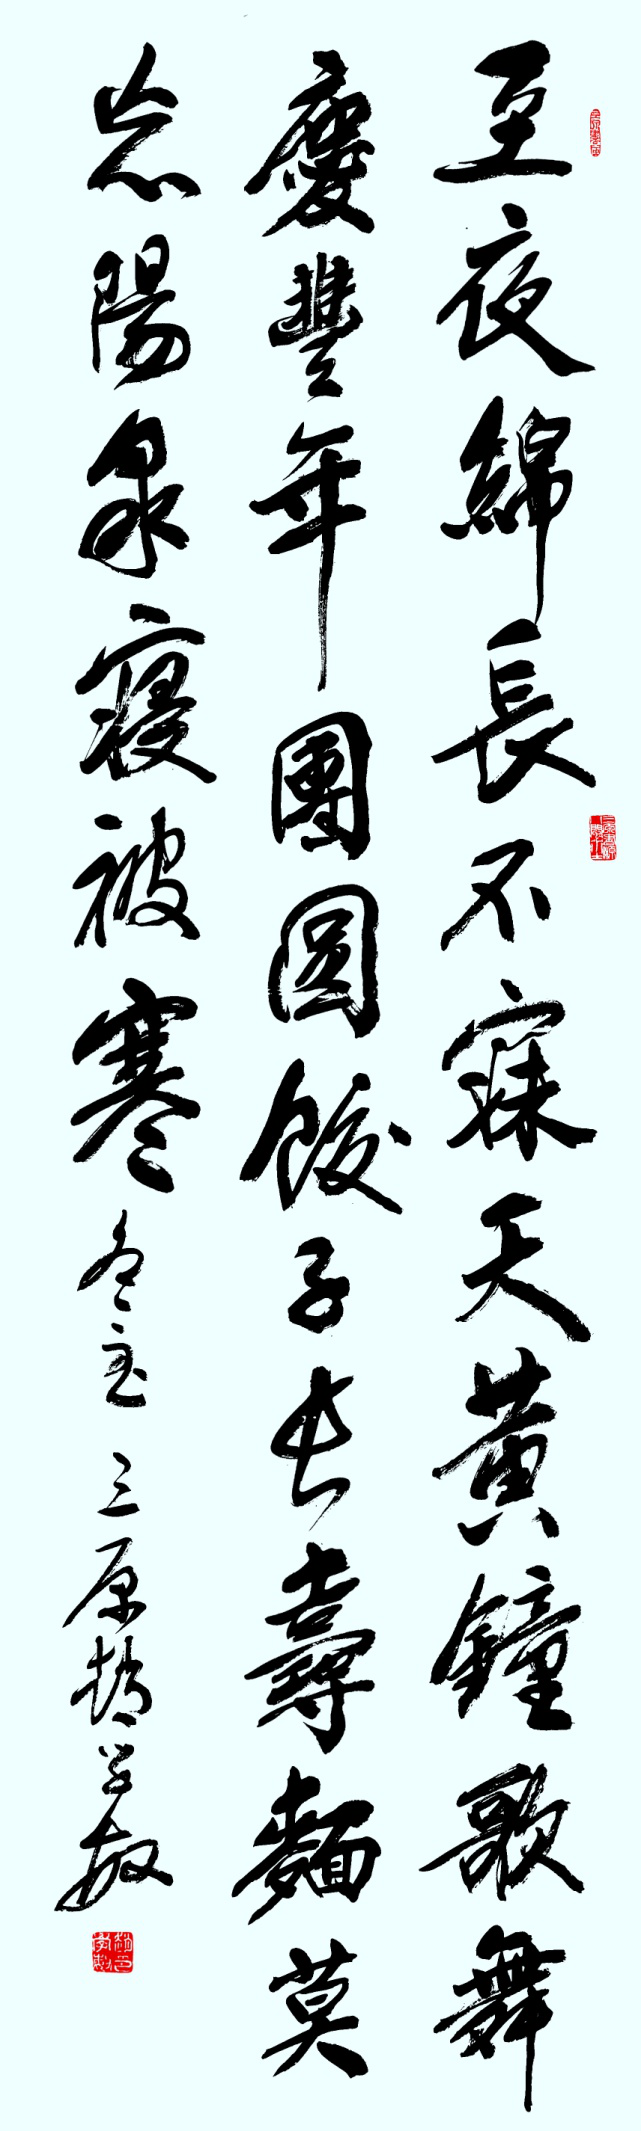 至夜綿長不寐天黃鐘歌舞
慶豐年團圆餃子长壽麵莫
忘陽泉寝被寒 冬至 三原赵学敏